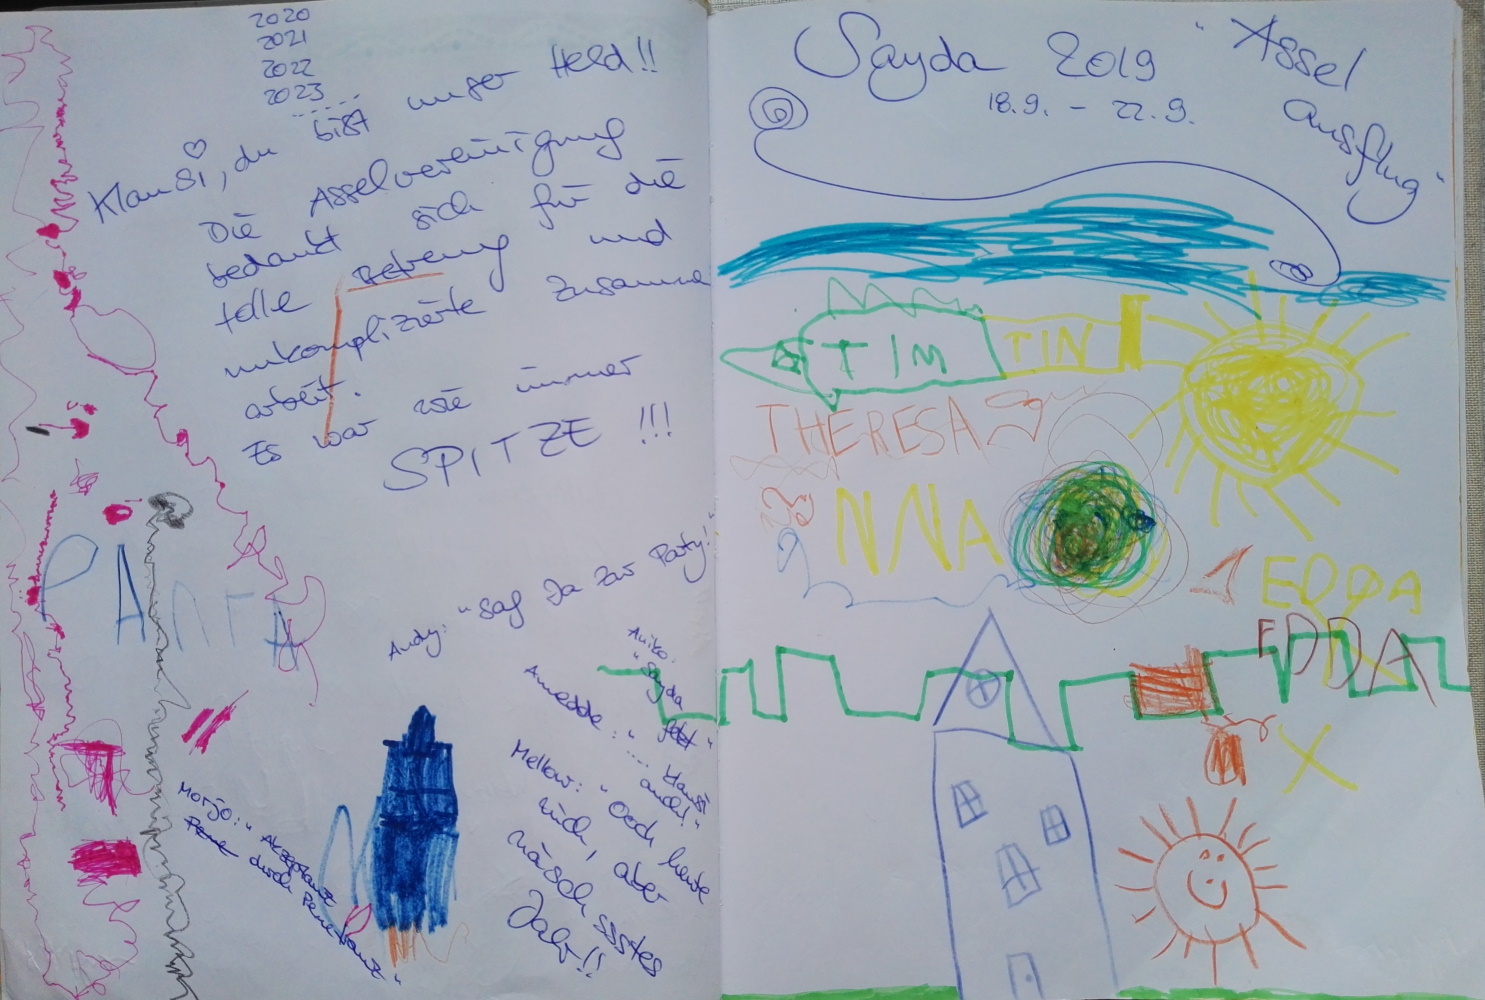 2020
2021
2022
2023
.....
Klausi, du bist unser Held!!
Die Asselvereinigung
bedankt sich für die
tolle Betreuung und
unkomplizierte Zusamme
arbeit.
Es war wie immer
SPITZE !!!
Andy: "Sag Ja zur Party!"
Aniko:
"Sayda
"
Amedde: "...
Klausi
auch!"
Mellow: "Och heute
nich, aber
näschsstes
Jahr!!
Morjo: " Akzeptanz
durch Penetranz"
Sayda 2019
18.9. - 22.9.
"Assel
ausflug"
TIM TIN
THERESA
NNA
EDDA
EDDA